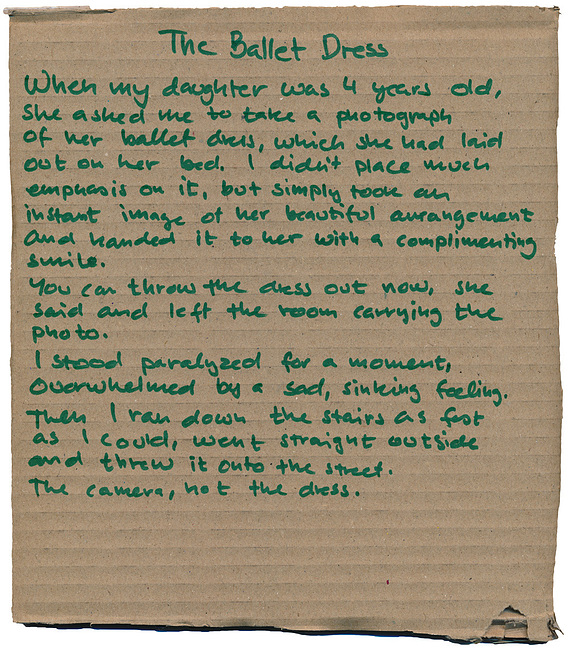 The Ballet Dress
When my daughter was 4 years old,
she asked me to take a photograph
of her ballet dress, which she had laid
out on her bed. I didn't place much
emphasis on it, but simply took an
instant image of her beautiful arrangement
and handed it to her with a complimenting
smile.
You can throw the dress out now, she
said and left the room carrying the
photo.
I stood paralyzed for a moment,
overwhelmed by a sad, sinking feeling.
Then I ran down the stairs as fast
as I could, went straight outside
and threw it onto the street.
The camera, not the dress.